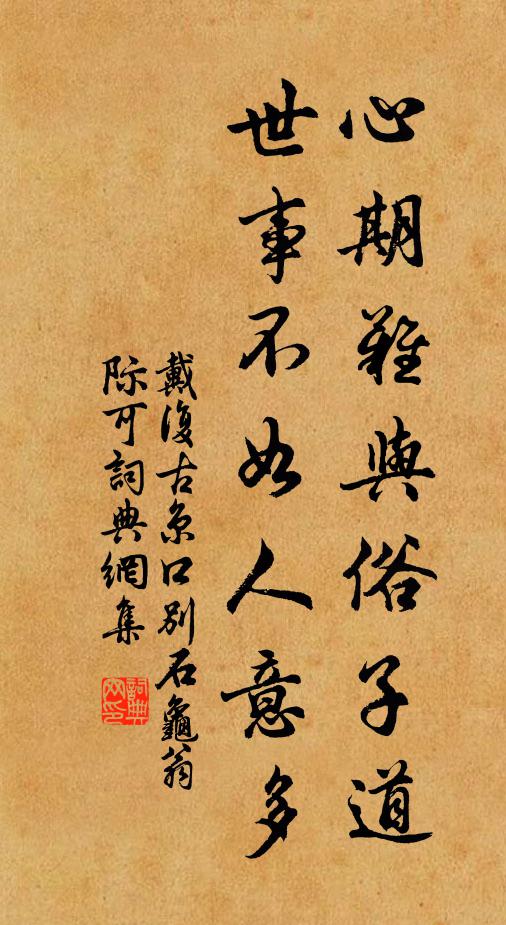 心期難與俗子道
世事不如人意多
戴復古京口別石龜翁
际可詞典網集
詞典網印